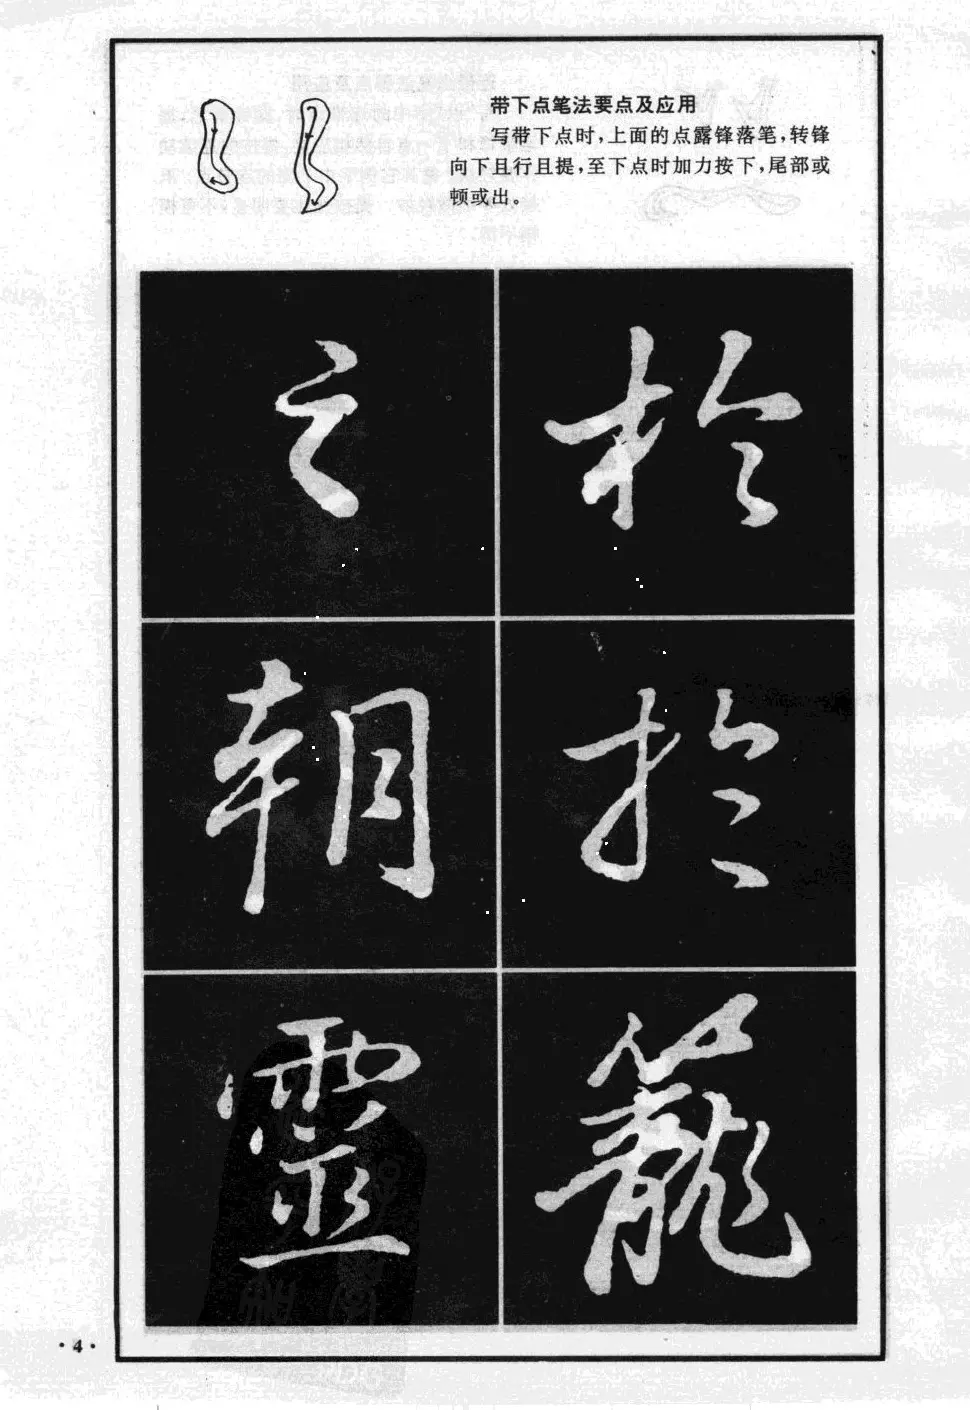 带下点笔法要点及应用
写带下点时，上面的点露锋落笔，转锋
向下且行且提，至下点时加力按下，尾部或
顿或出。
之 於
朝 於
靈 籠
·4·